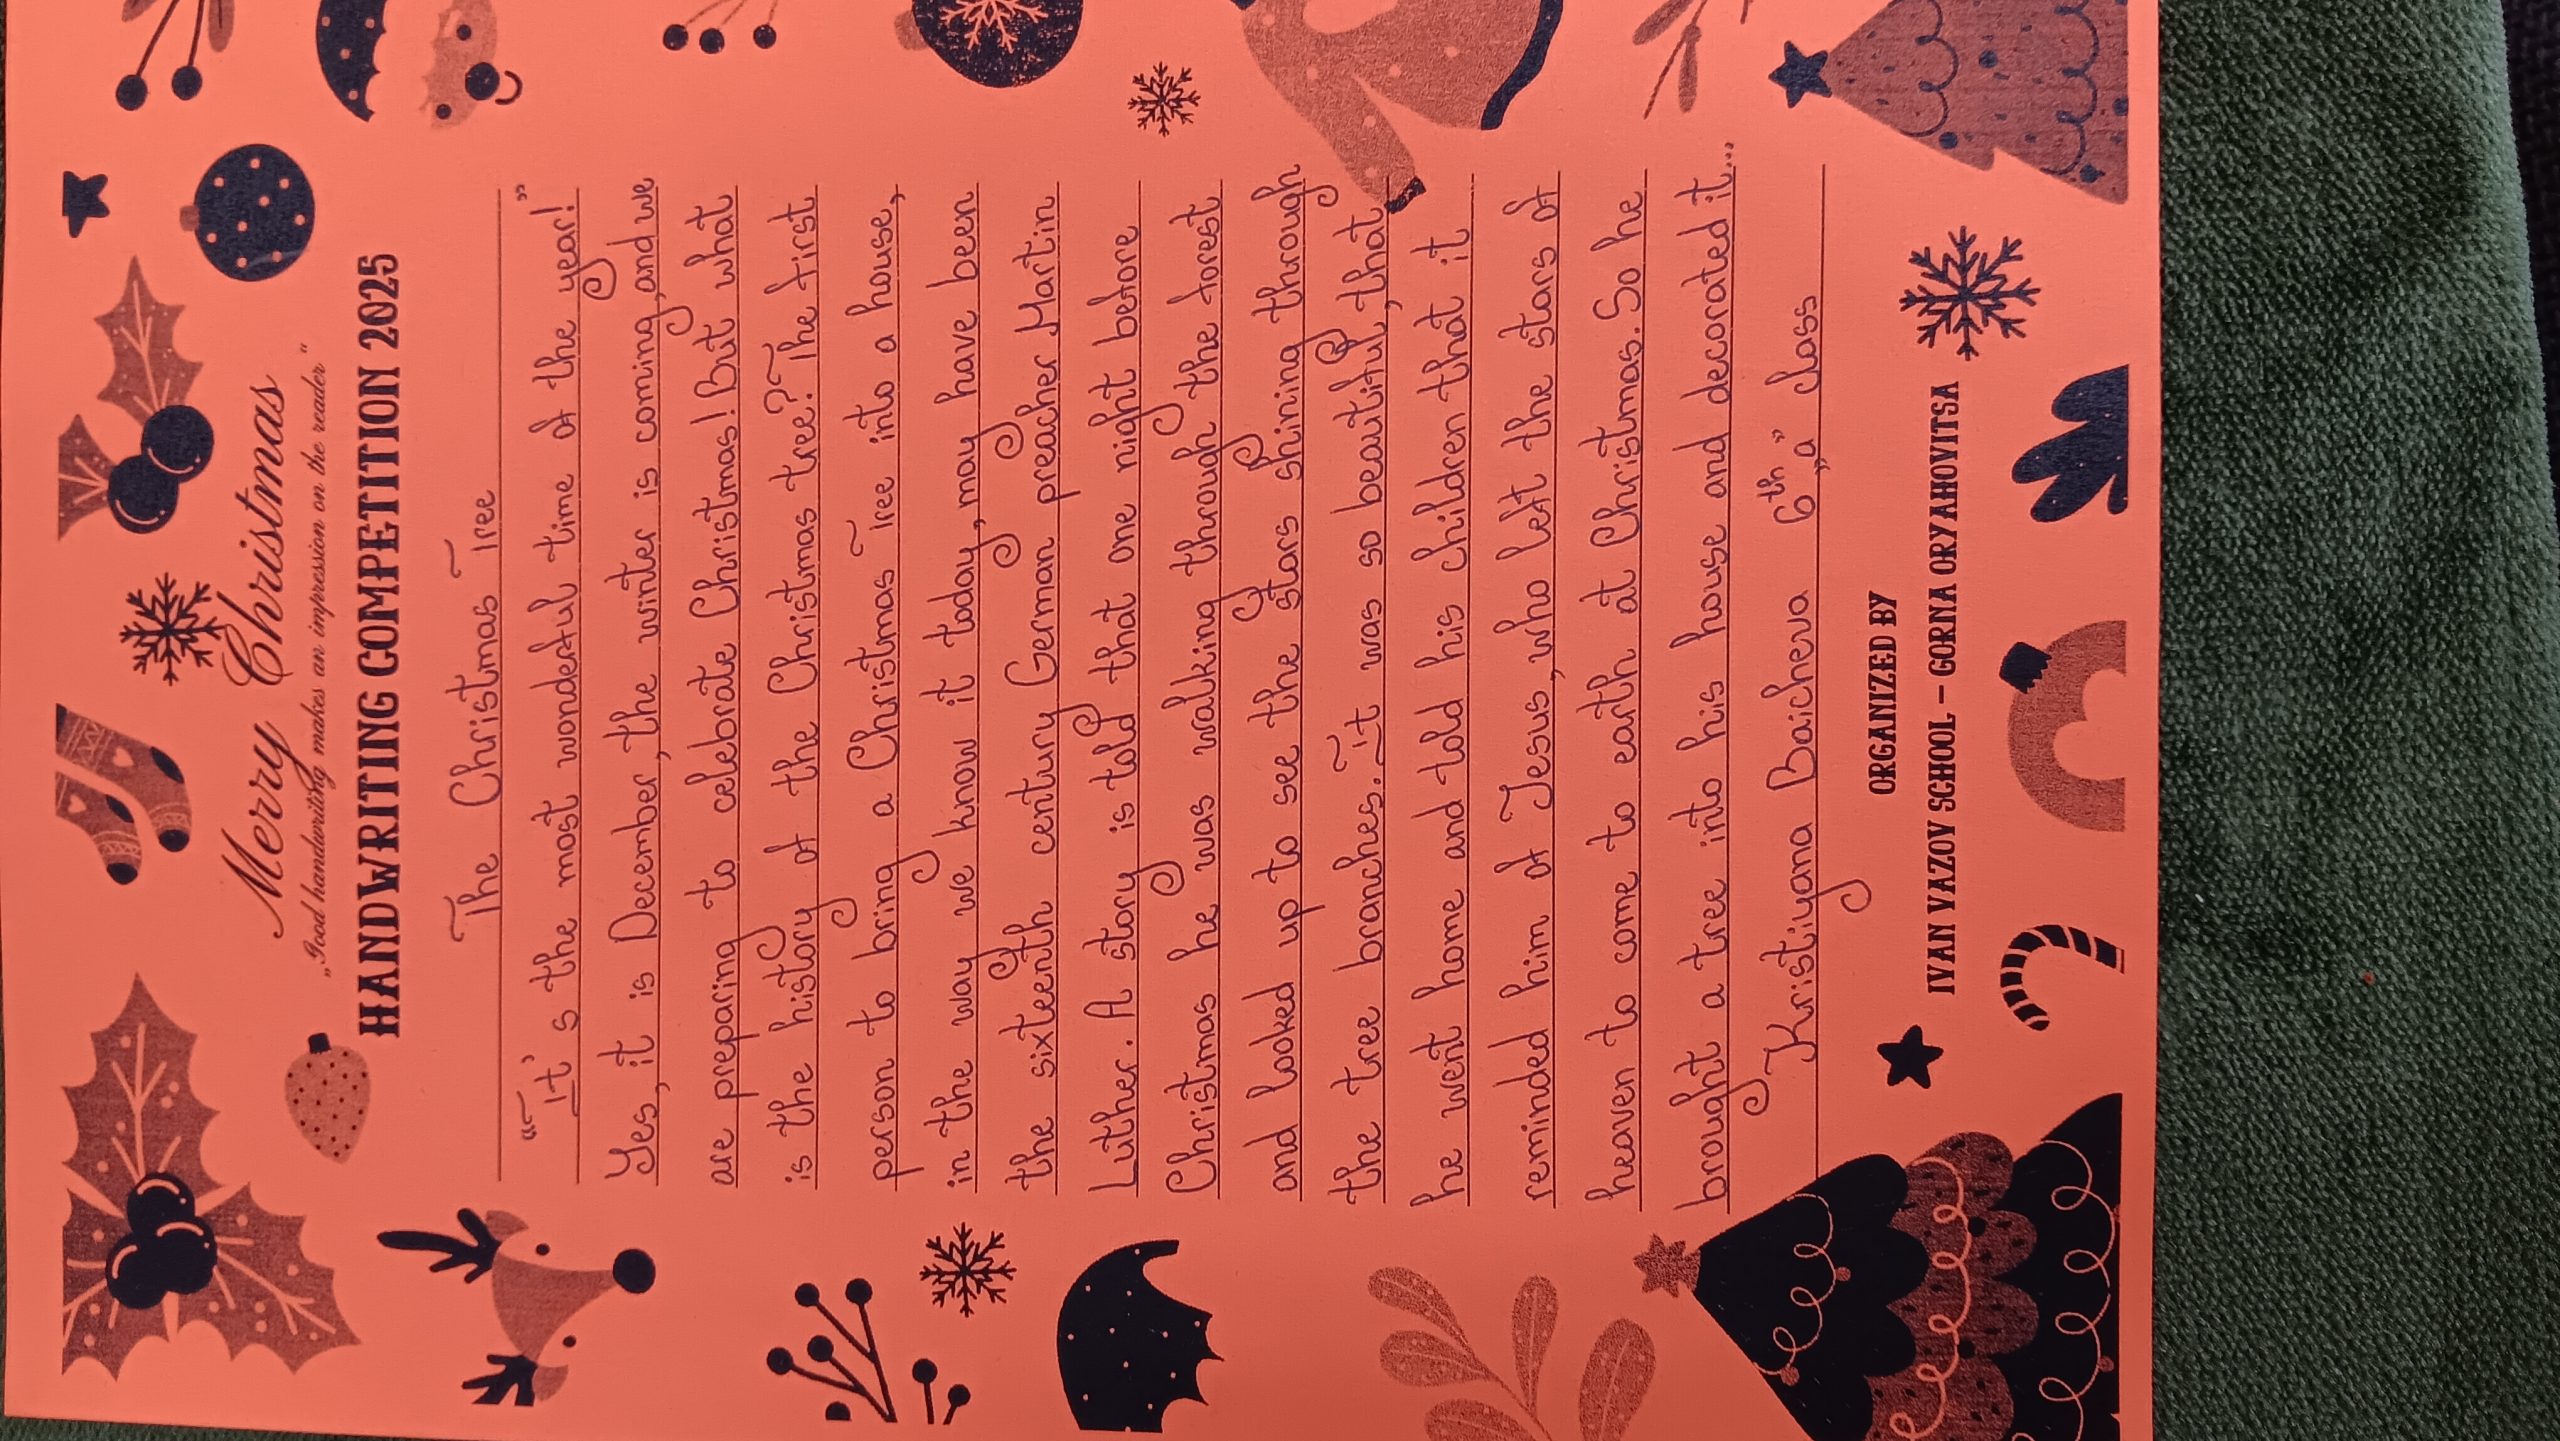 Merry Christmas
„Good handwriting makes an impression on the reader“
HANDWRITING COMPETITION 2025
The Christmas Tree
“It's the most wonderful time of the year!”
Yes, it is December, the winter is coming, and we
are preparing to celebrate Christmas! But what
is the history of the Christmas tree? The first
person to bring a Christmas Tree into a house,
in the way we know it today, may have been
the sixteenth century German preacher Martin
Luther. A story is told that one night before
Christmas he was walking through the forest
and looked up to see the stars shining through
the tree branches. It was so beautiful, that
he went home and told his children that it
reminded him of Jesus, who left the stars of
heaven to come to earth at Christmas. So he
brought a tree into his house and decorated it...
Kristiyana Baicheva 6th „a” class
ORGANIZED BY
IVAN VAZOV SCHOOL – GORNA ORYAHOVITSA